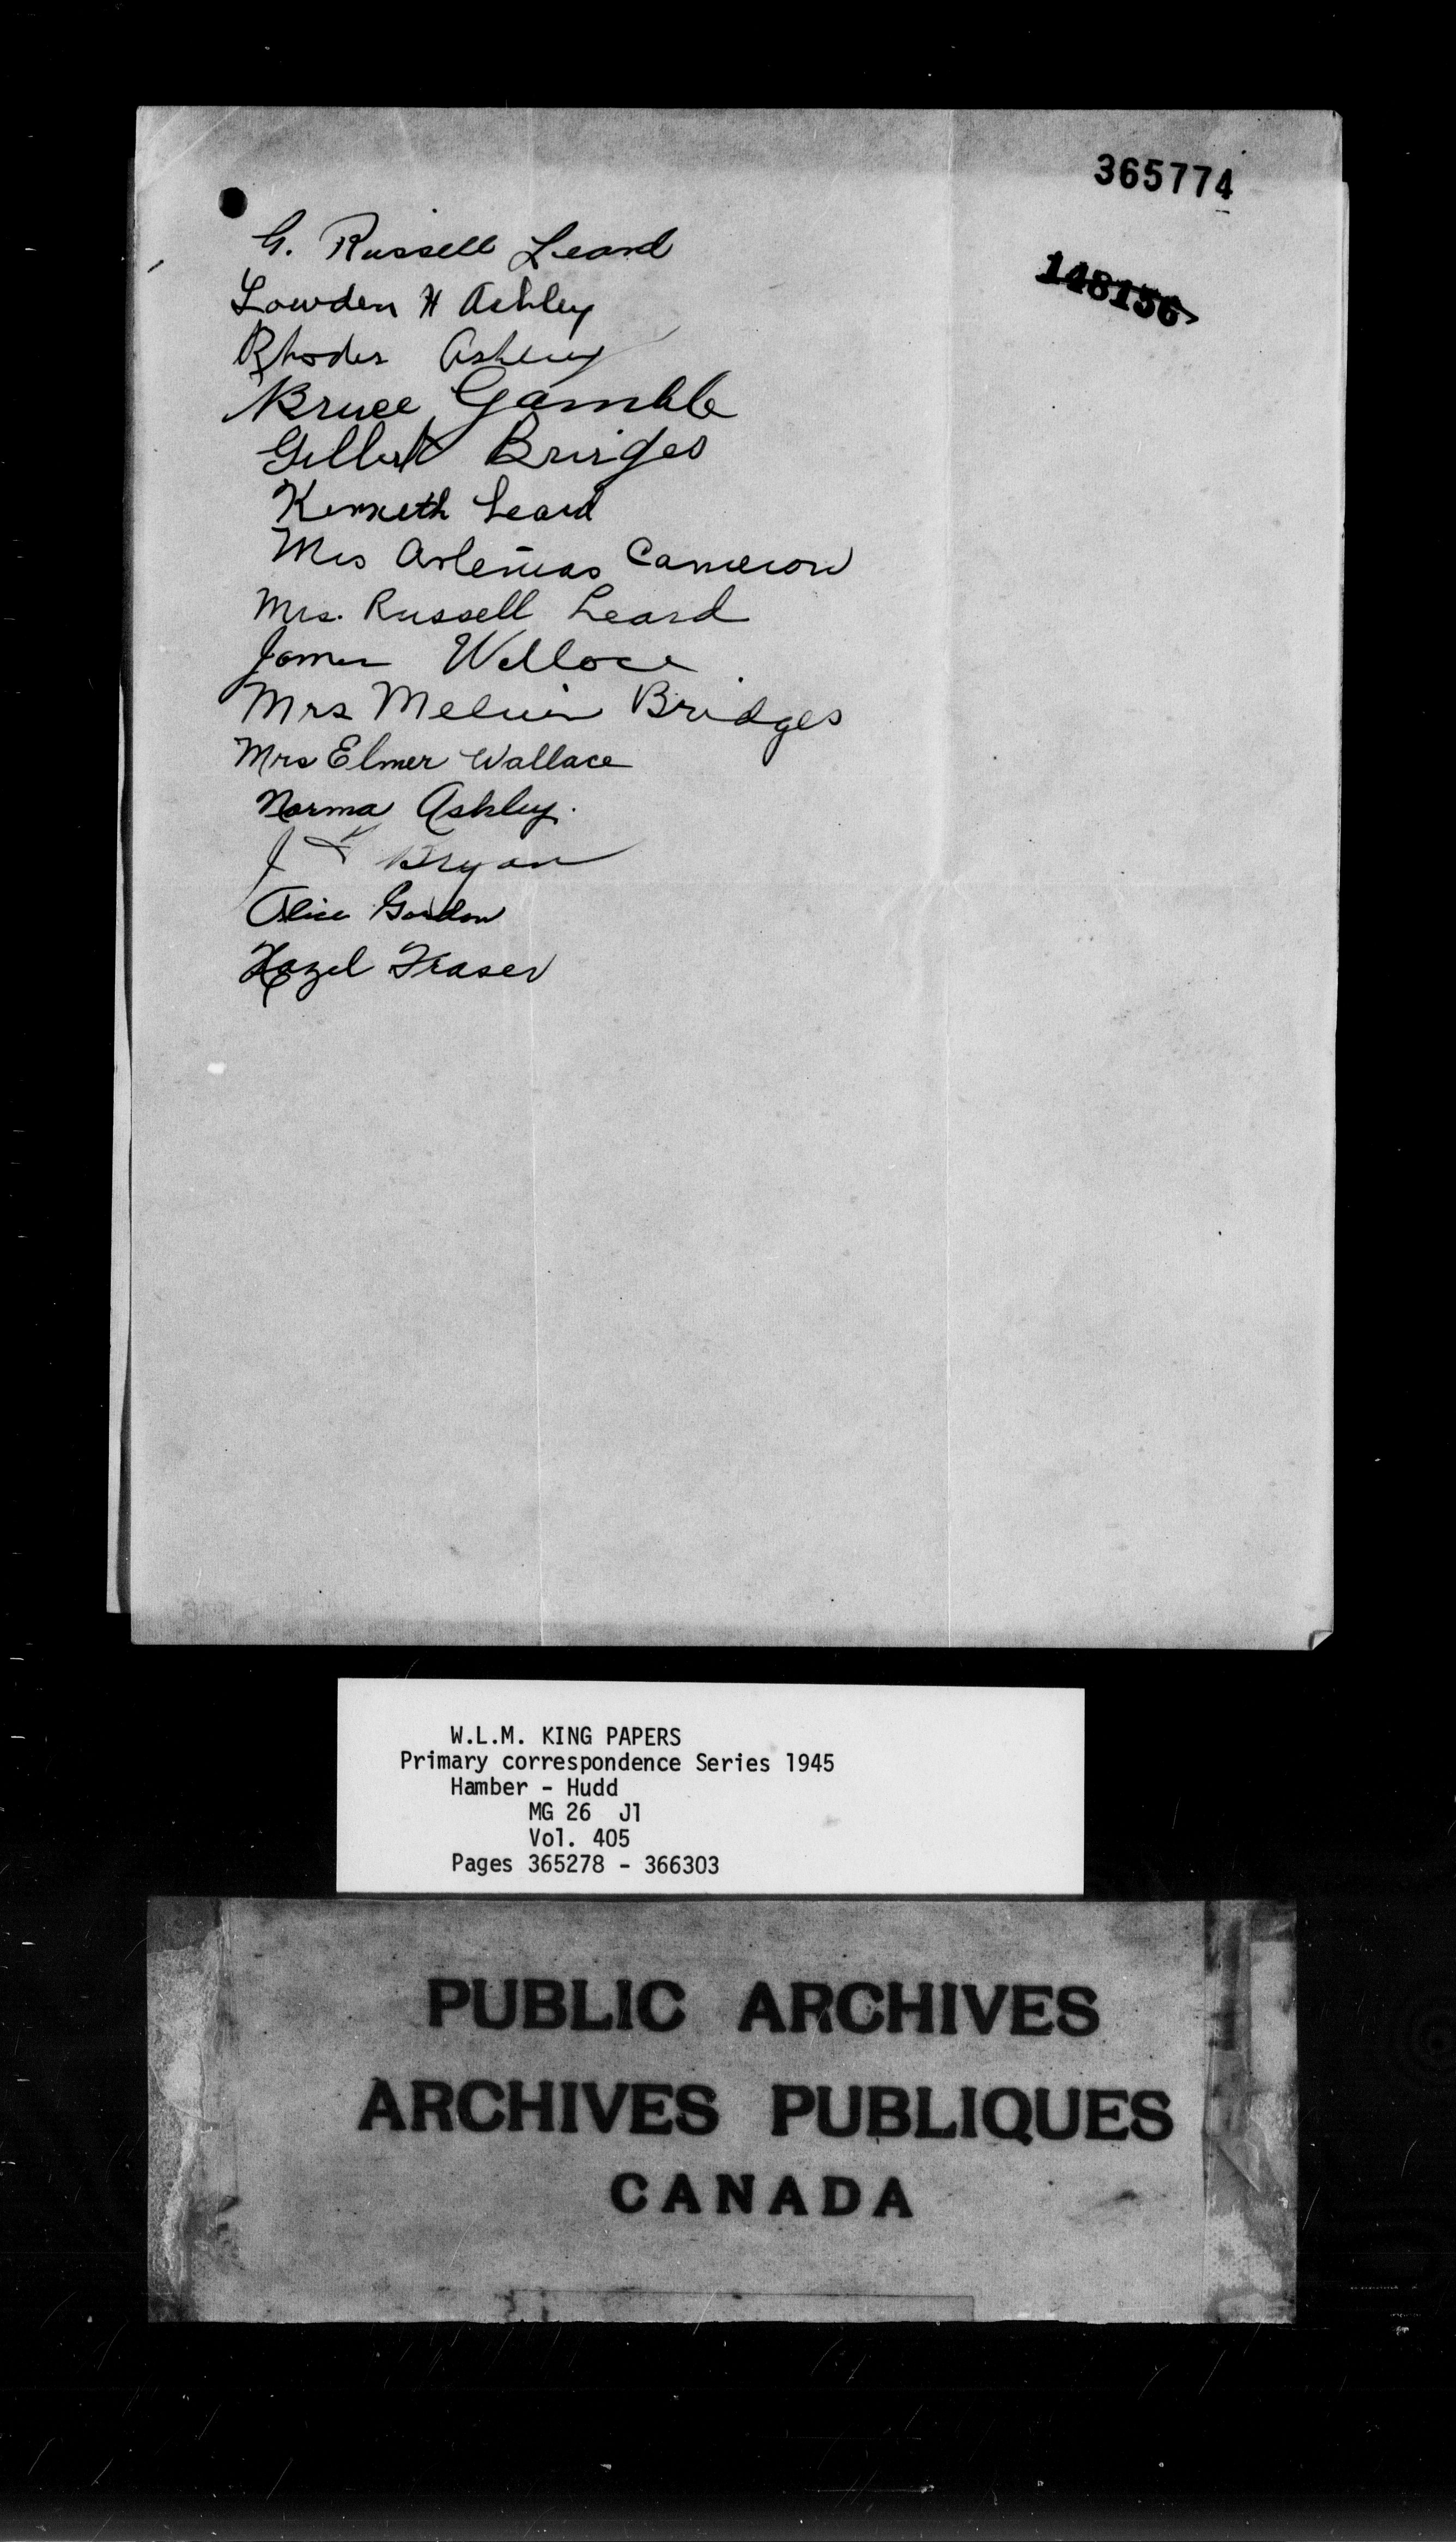 365774
148156
G. Russell Leard
Lowden H Ashley
Rhodes Ashley
Bruce Gamble
Gilbert Brirges
Kenneth Leard
Mrs Artemas Cameron
Mrs. Russell Leard
James Wallace
Mrs Melvin Bridges
Mrs Elmer Wallace
Norma Ashley.
J Bryan
Alice Gordon
Hazel Fraser
W.L.M. KING PAPERS
Primary correspondence Series 1945
Hamber - Hudd
MG 26 J1
Vol. 405
Pages 365278 - 366303
PUBLIC ARCHIVES
ARCHIVES PUBLIQUES
CANADA